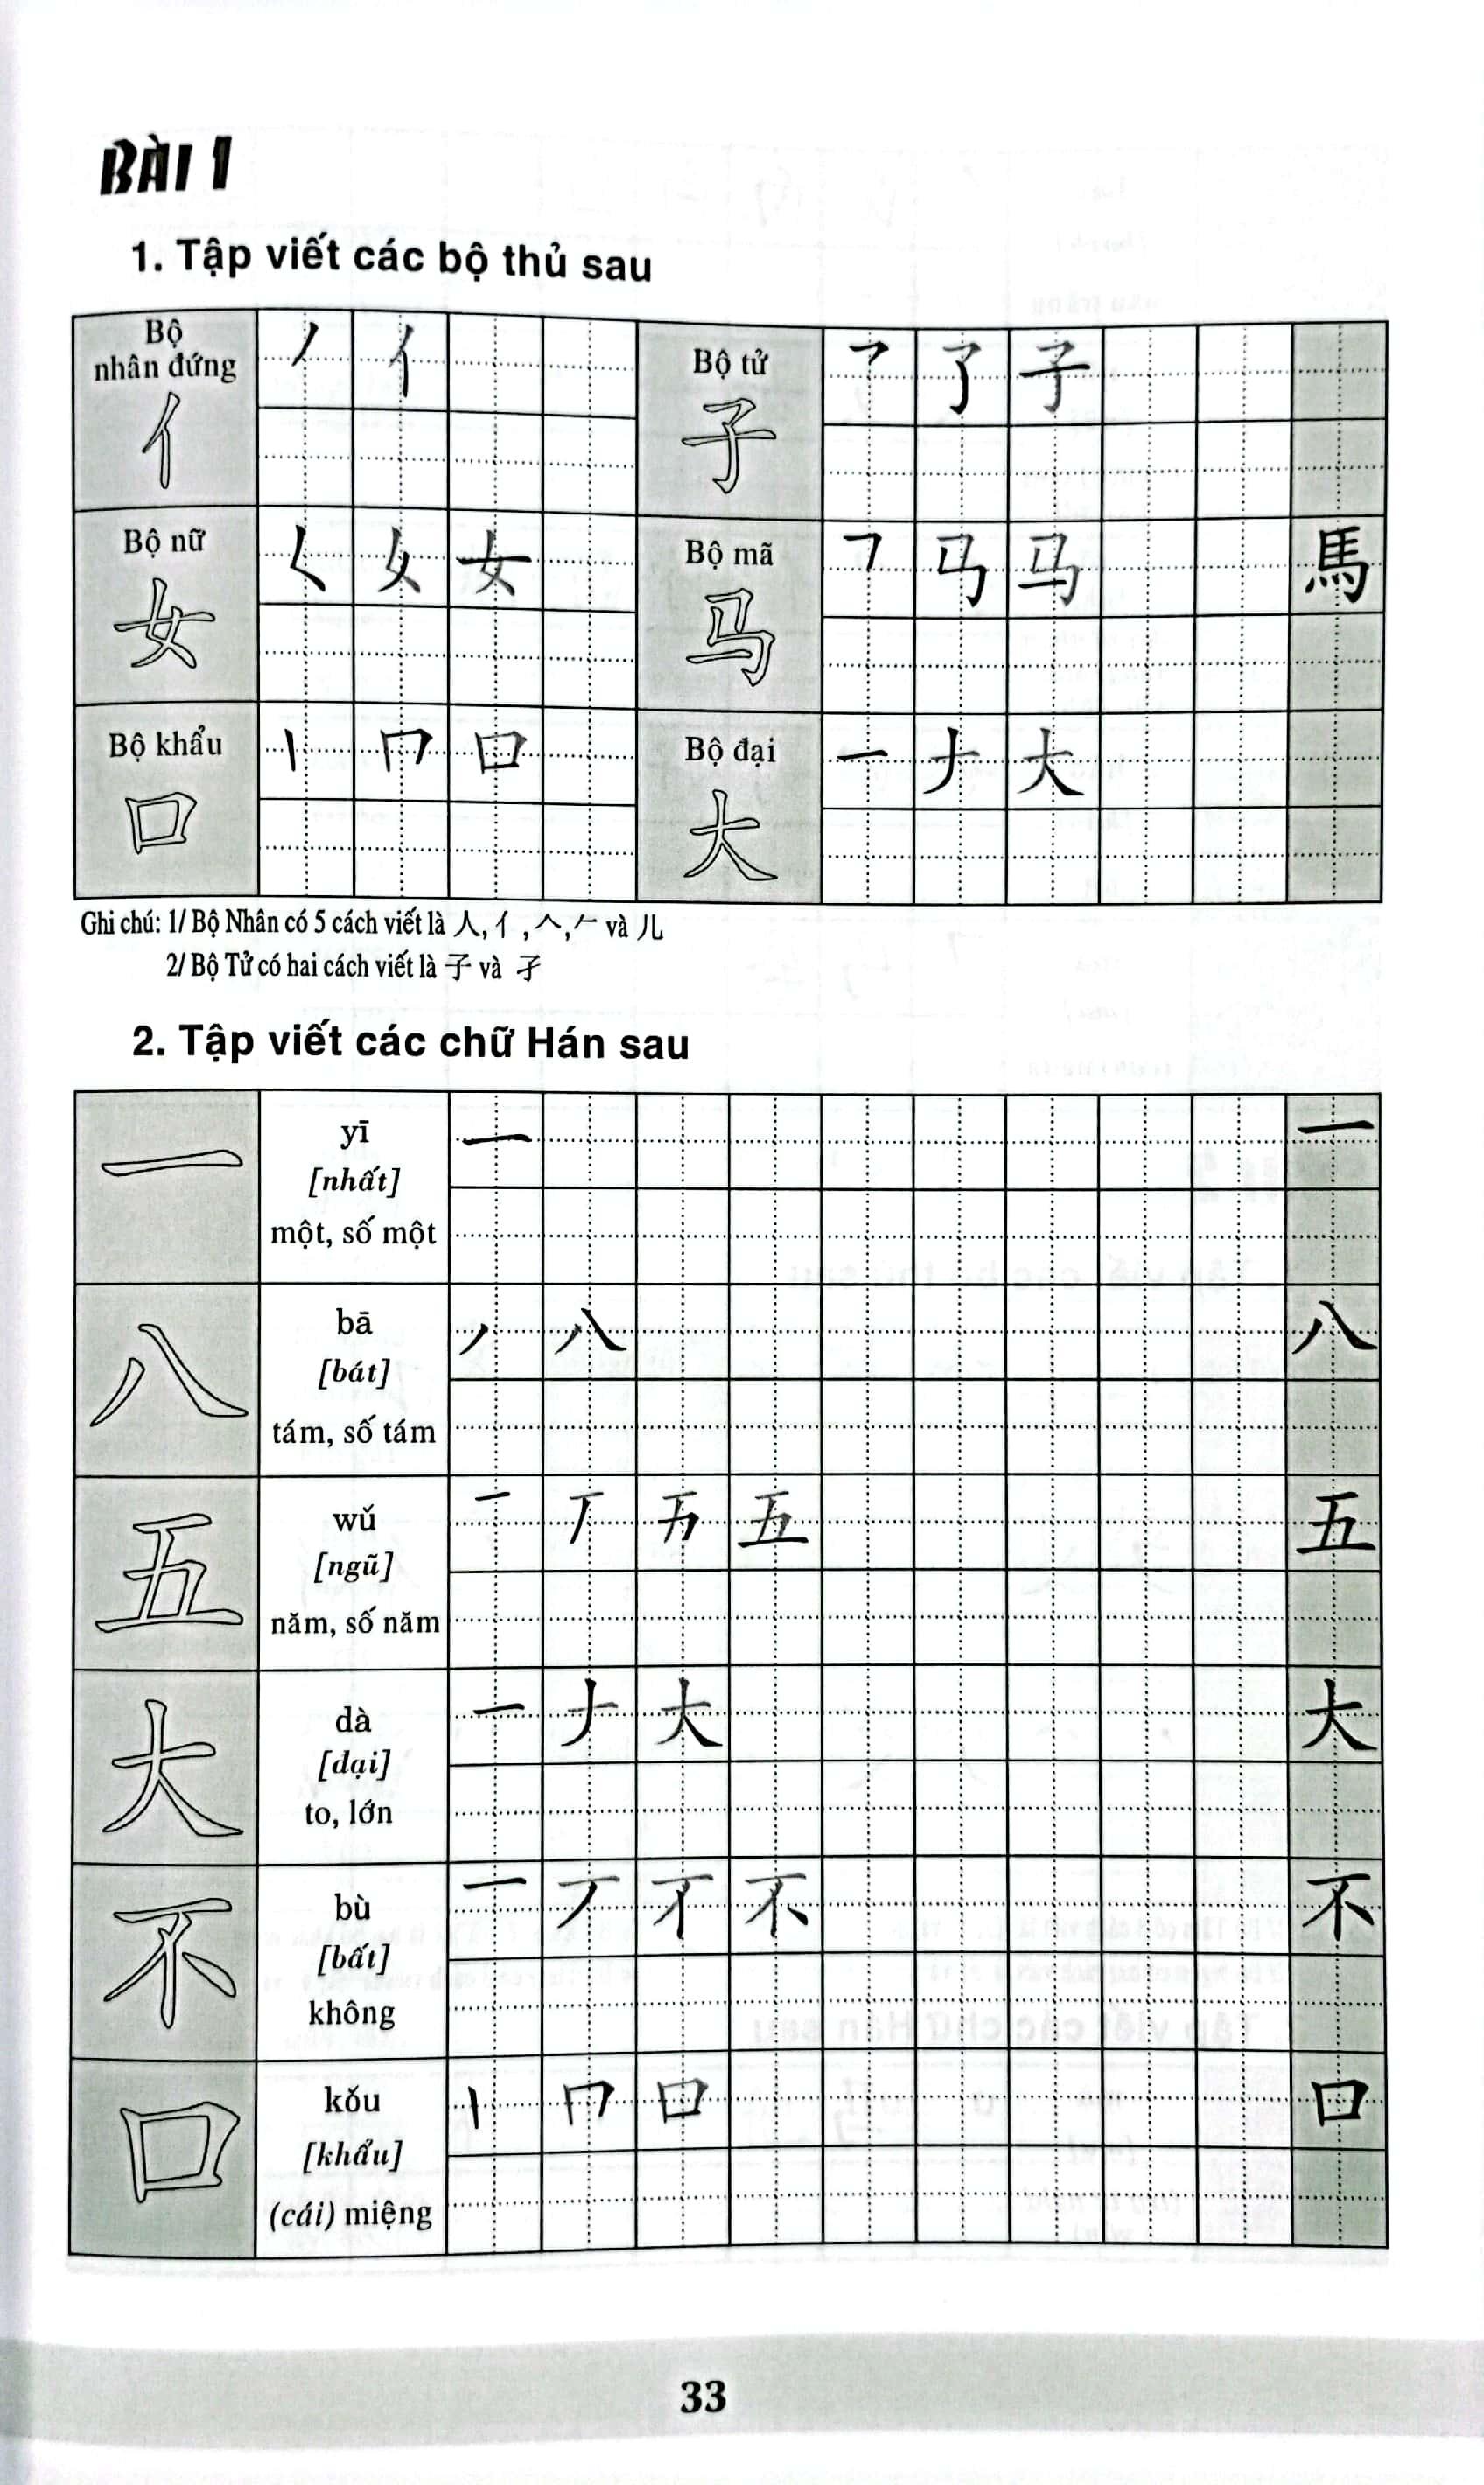 BÀI 1
1. Tập viết các bộ thủ sau
Bộ nhân đứng 亻 丿 亻
Bộ tử 子 乛 了 子
Bộ nữ 女 𡿨 女
Bộ mã 马 ㇕ 马 馬
Bộ khẩu 口 丨 冂 口
Bộ đại 大 一 ナ 大
Ghi chú: 1/ Bộ Nhân có 5 cách viết là 人, 亻, 𠆢, 𠂉 và 儿
2/ Bộ Tử có hai cách viết là 子 và 孑
2. Tập viết các chữ Hán sau
一 yī 一 一
[nhất]
một, số một
八 bā 丿 八 八
[bát]
tám, số tám
五 wǔ 一 丅 五 五
[ngũ]
năm, số năm
大 dà 一 ナ 大 大
[dại]
to, lớn
不 bù 一 丆 不 不
[bất]
không
口 kǒu 丨 冂 口 口
[khẩu]
(cái) miệng
33